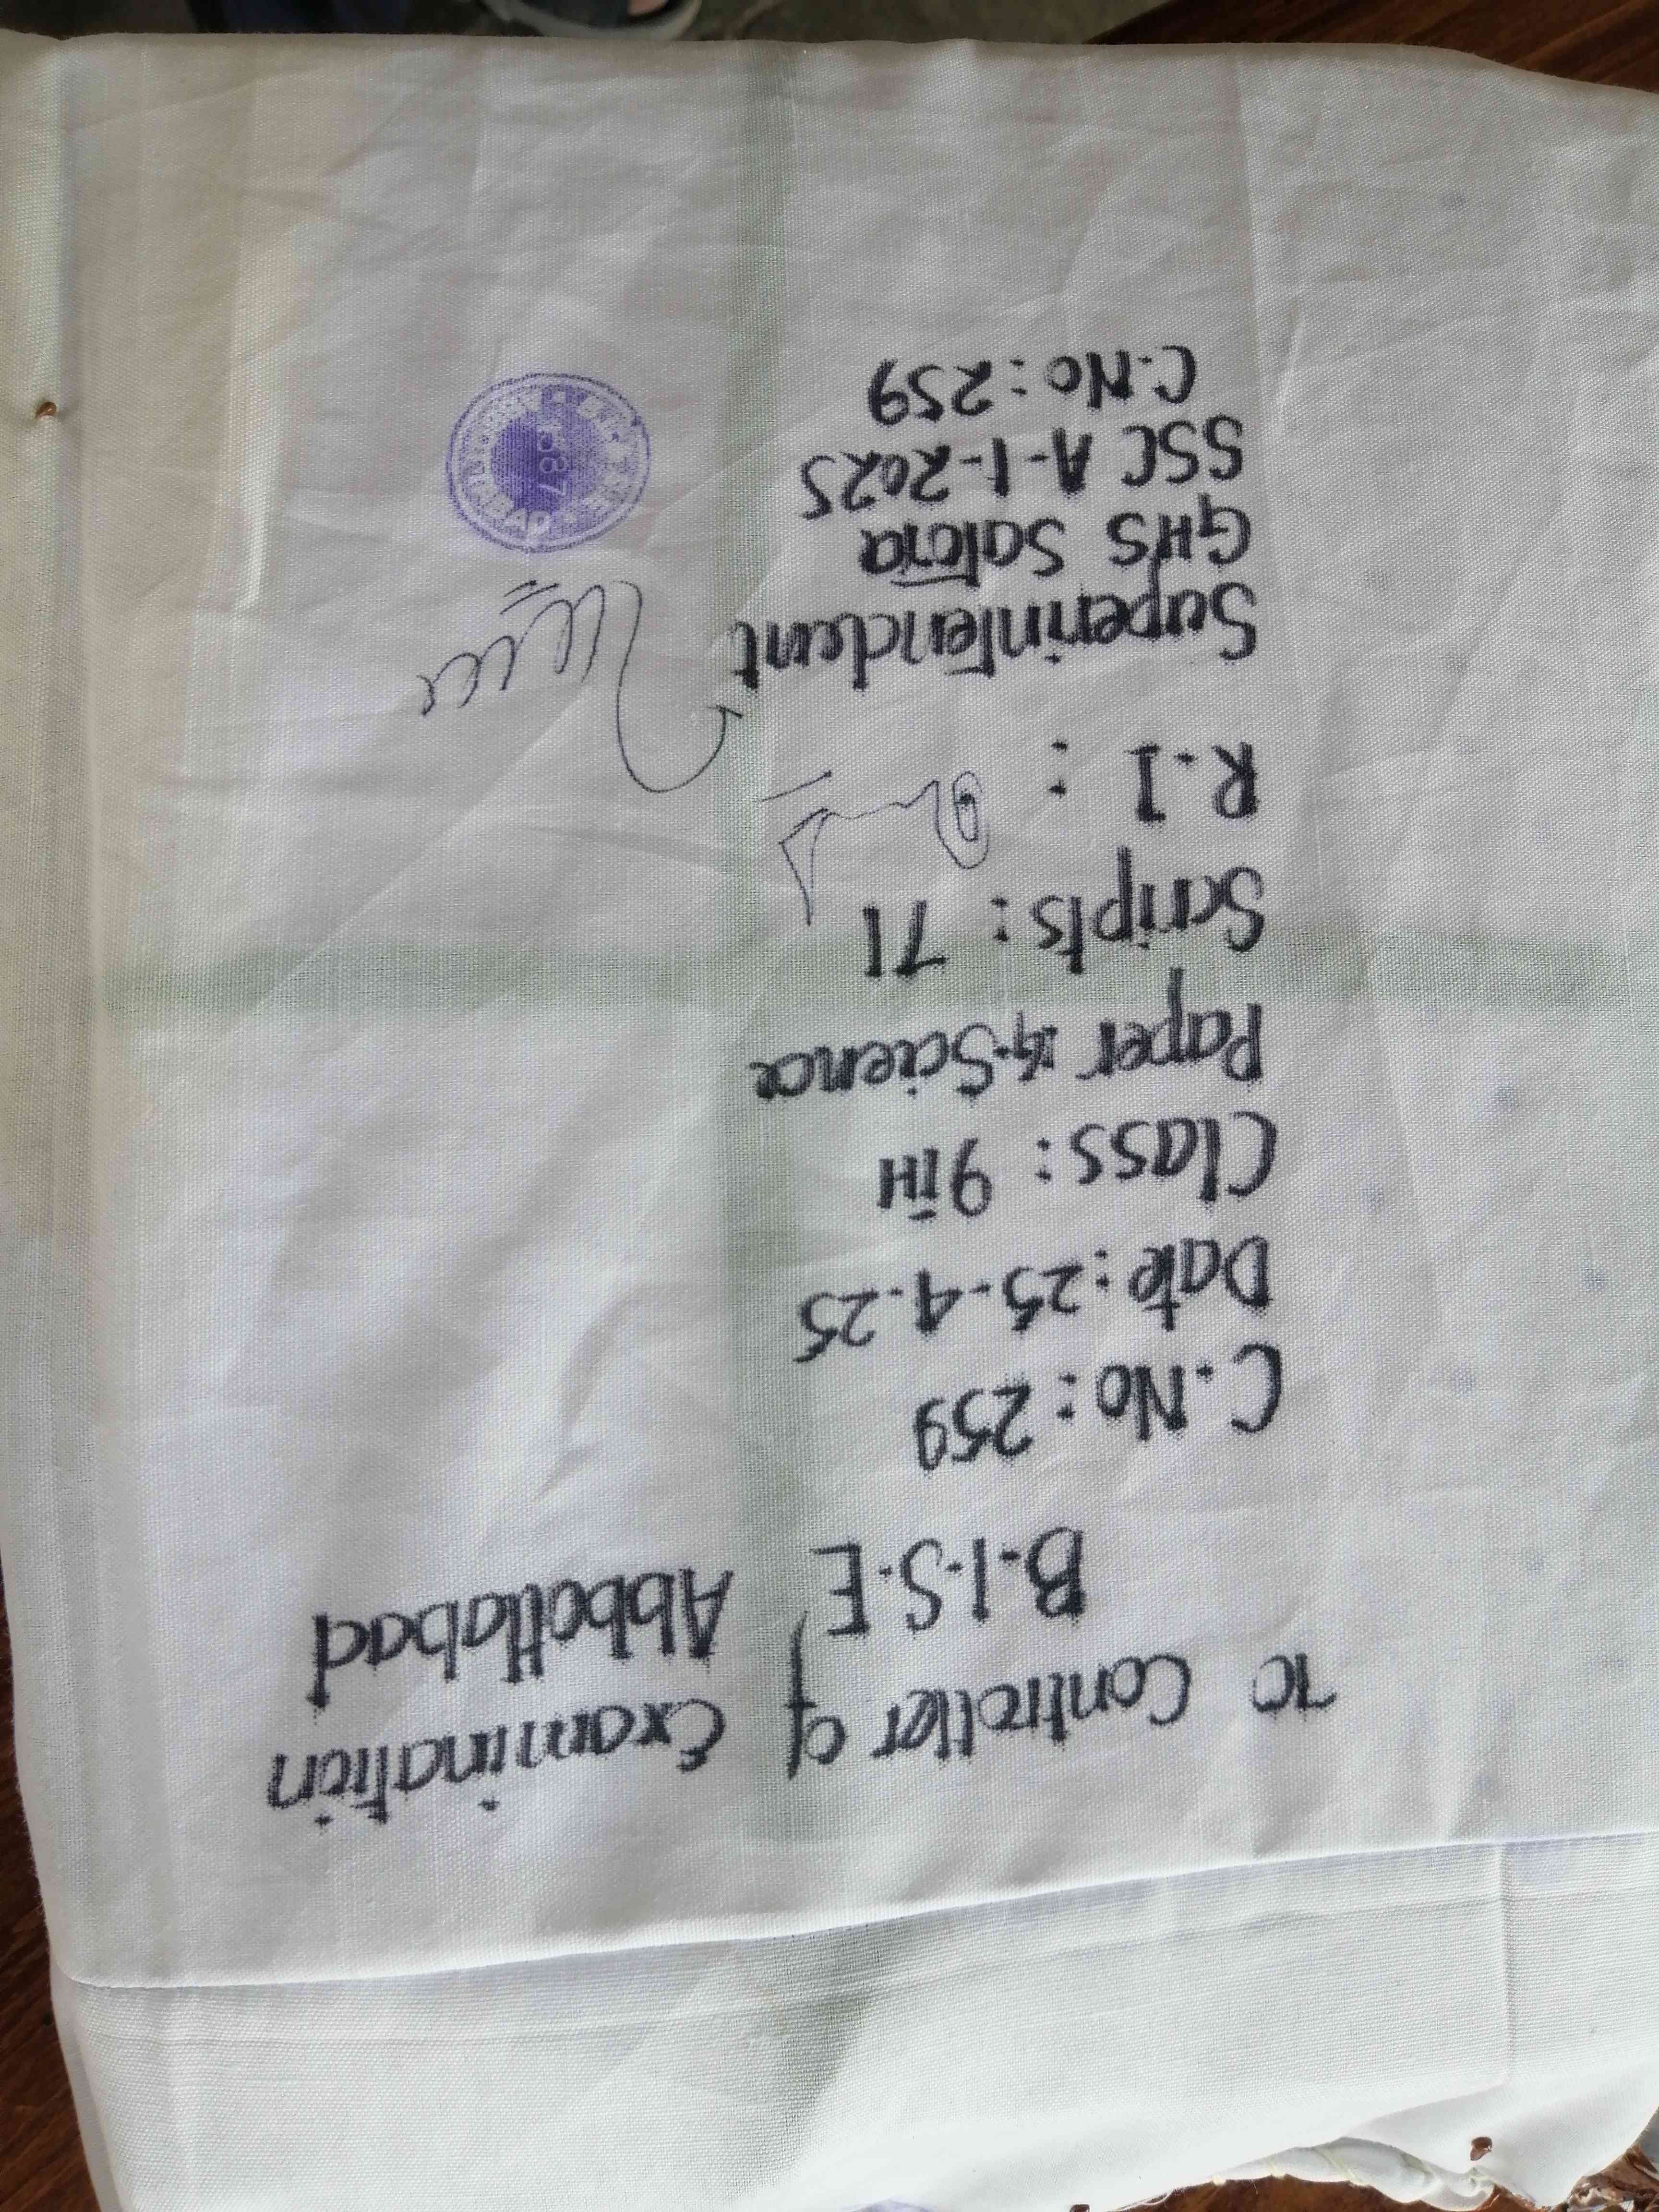 To Controller of Examination
B.I.S.E Abbottabad
C.No: 259
Date: 25-4-25
Class: 9TH
Paper G-Science
Scripts: 71
R.I :
Superintendent
GHS Salora
SSC A-1-2025
C.No: 259